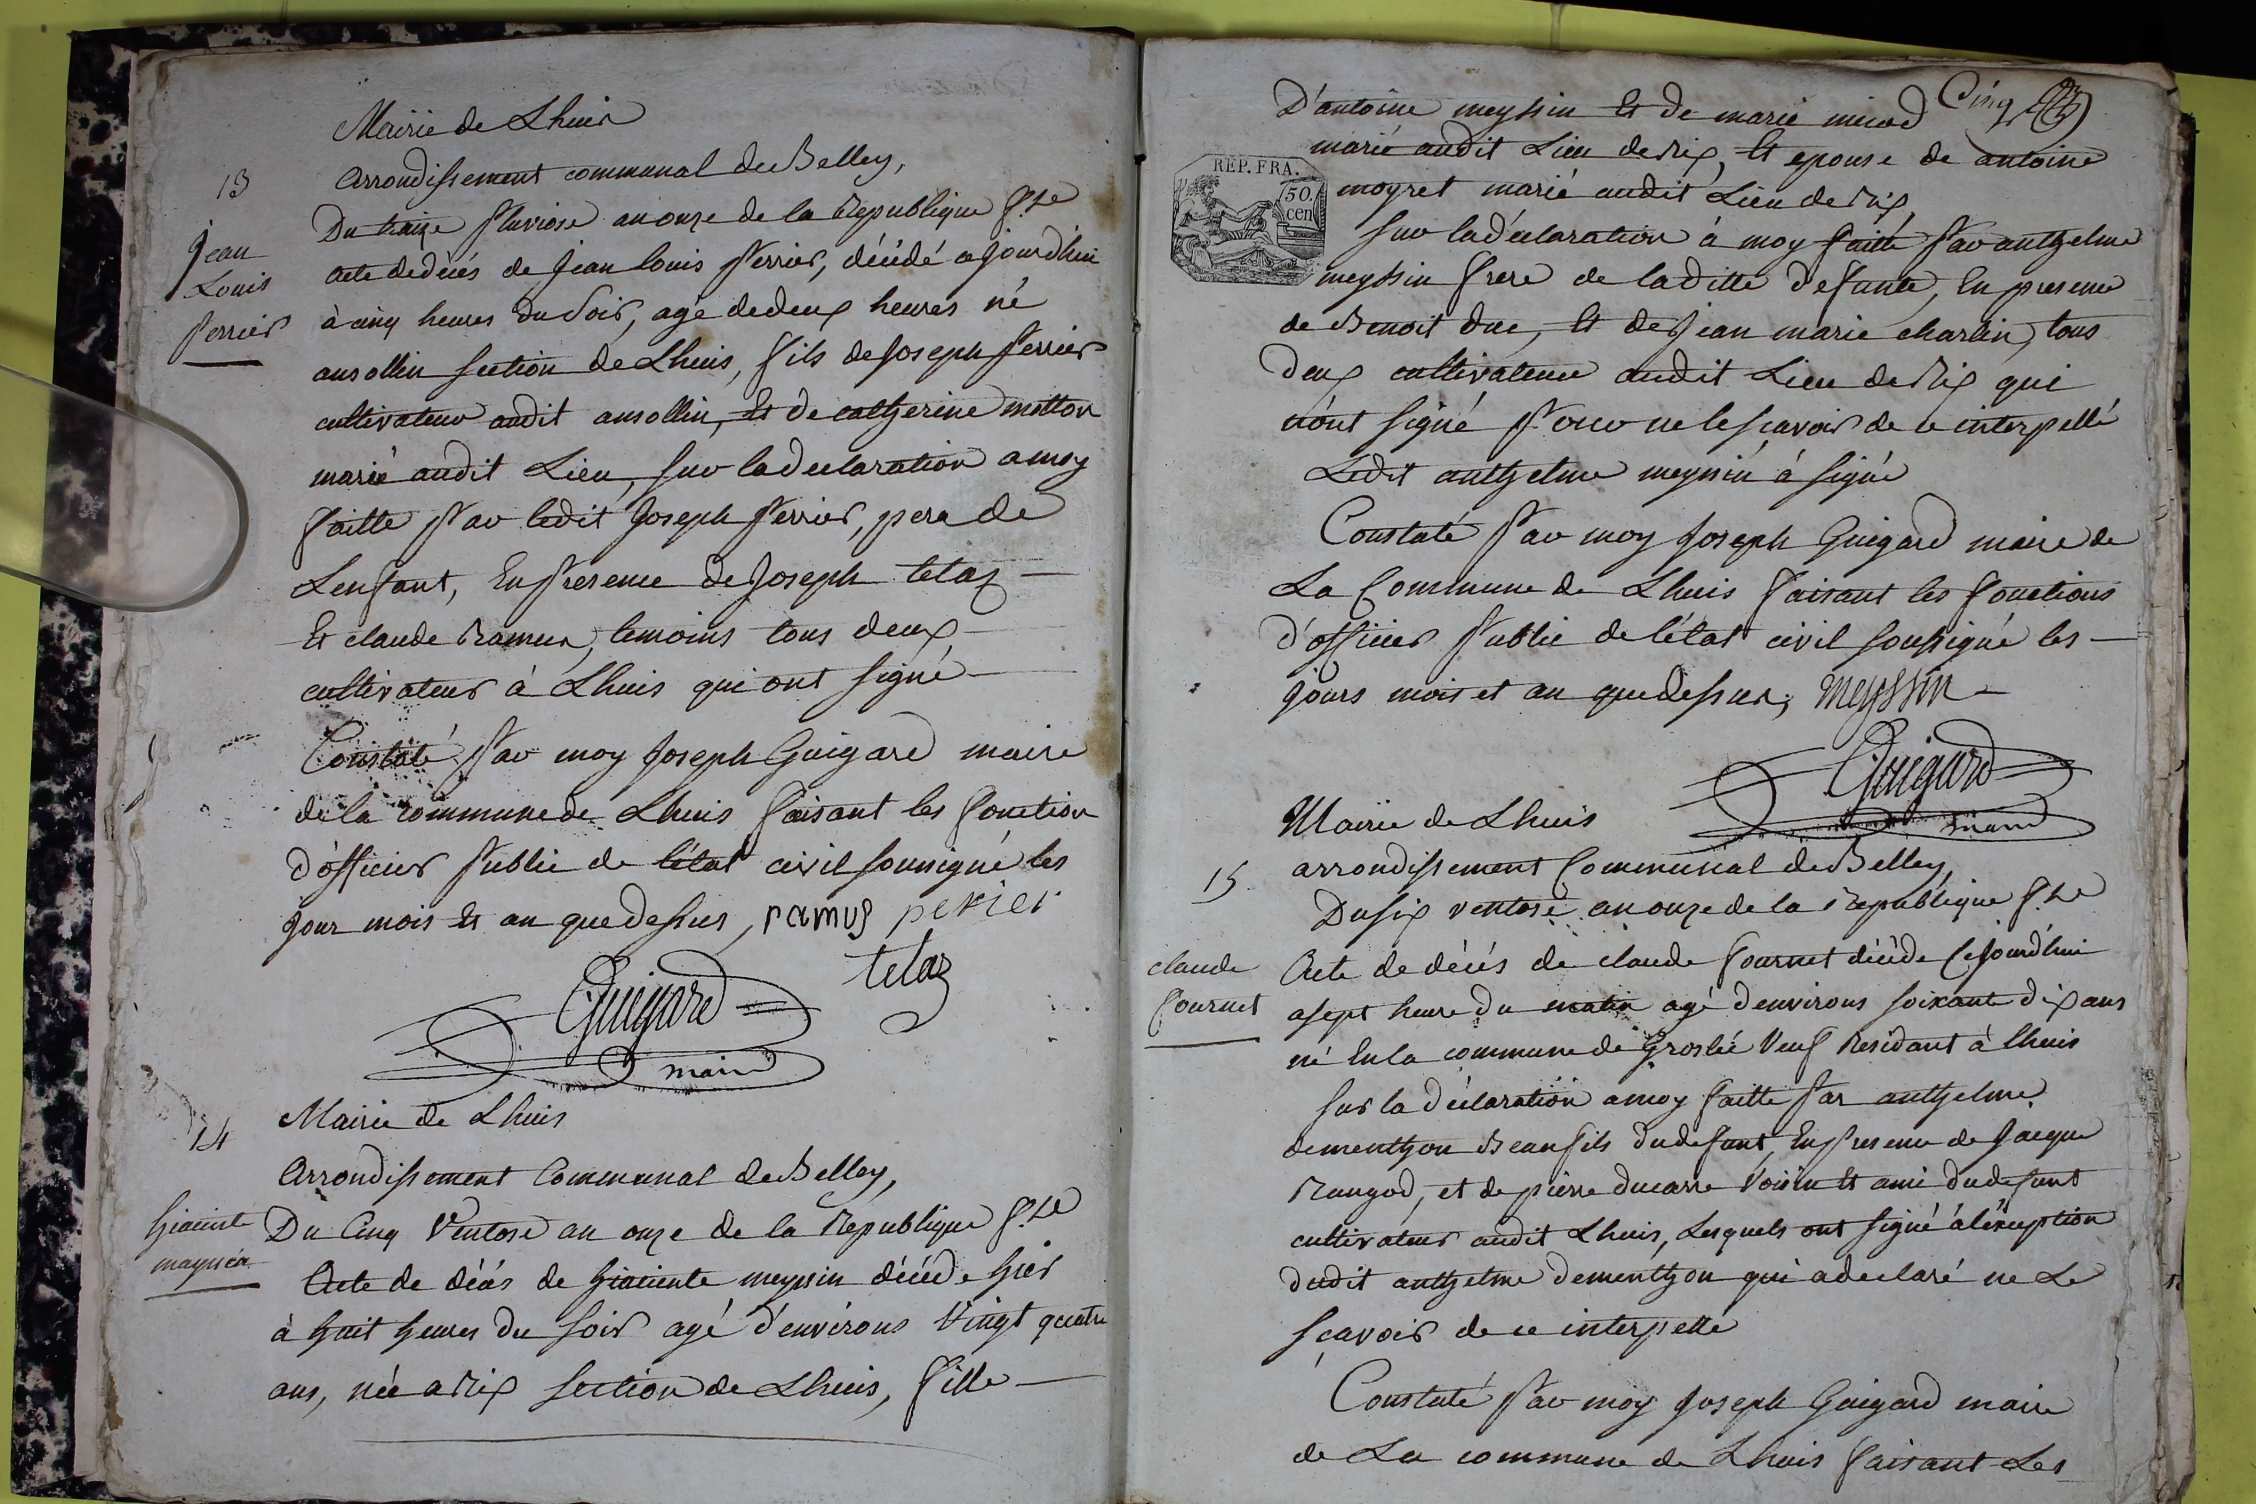 Mairie de Lhuis
13
arrondissement communal de Belley,
Jean
Louis
Perrier
Du traize Pluviose an onze de la Republique f.se
acte de décés de Jean Louis Perrier, décédé cejourdhui
à cinq heures du Soir, agé de deux heures né
ansollin section de Lhuis, fils de Joseph Perrier
cultivateur audit ansollin, Et de catherine motton
marié audit Lieu, Sur la declaration a moy
faitte Par ledit Joseph Perrier, pere de
Lenfant, En Presence de Joseph telaz
Et claude Ramus, temoins tous deux
cultivateurs à Lhuis qui ont signé
Constaté Par moy Joseph Guigard maire
de la commune de Lhuis faisant les fonction
d'officier Public de l'état civil soussigné les
jour mois Et an que dessus, ramus perier
telaz
Guigard
maire
Mairie de Lhuis
14
Arrondissement Communal de Belley,
hiacinte
meyssin
Du Cinq Ventose an onze de la Republique f.se
Acte de décés de hiaciente meyssin décéde hier
à huit heures du soir agé d'environs Vingt quatre
ans, née a Rix section de Lhuis, fille
Cinq
D'antoine meyssin Et de marie micod
REP. FRA.
50.
cen
marié audit Lieu de Rix, Et epouse de antoine
moyret marié audit Lieu de Rix
Sur la déclaration à moy faitte Par anthelme
meyssin frere de laditte defunte, En presence
de Benoit duc, Et de Jean marie charlin, tous
deux cultivateur audit Lieu de Rix qui
n'ont signé Pour ne le sçavoir de ce interpellé
Ledit anthelme meyssin à signé
Constaté Par moy Joseph Guigard maire de
La Commune de Lhuis faisant les fonctions
d'officier Public de l'état civil soussigné les
jours mois et an que dessus, meyssin
Guigard
maire
Mairie de Lhuis
arrondissement Communal de Belley,
15
Du six ventose an onze de la Republique f.se
claude
fournet
Acte de décés de claude fournet décéde Cejourd'hui
a sept heure du matin agé d'environs soixante dix ans
né En la commune de Groslée Veuf Residant à Lhuis
sur la déclaration a moy faitte Par anthelme
dementhon Beaufils du defunt, En Presence de Jacque
Rangod, et de pierre ducarre Voisin Et ami du defunt
cultivateur audit Lhuis, Lesquels ont signé à l'exception
dudit anthelme dementhon qui a declaré ne Le
sçavoir de ce interpellé
Constaté Par moy Joseph Guigard maire
de La commune de Lhuis faisant Les